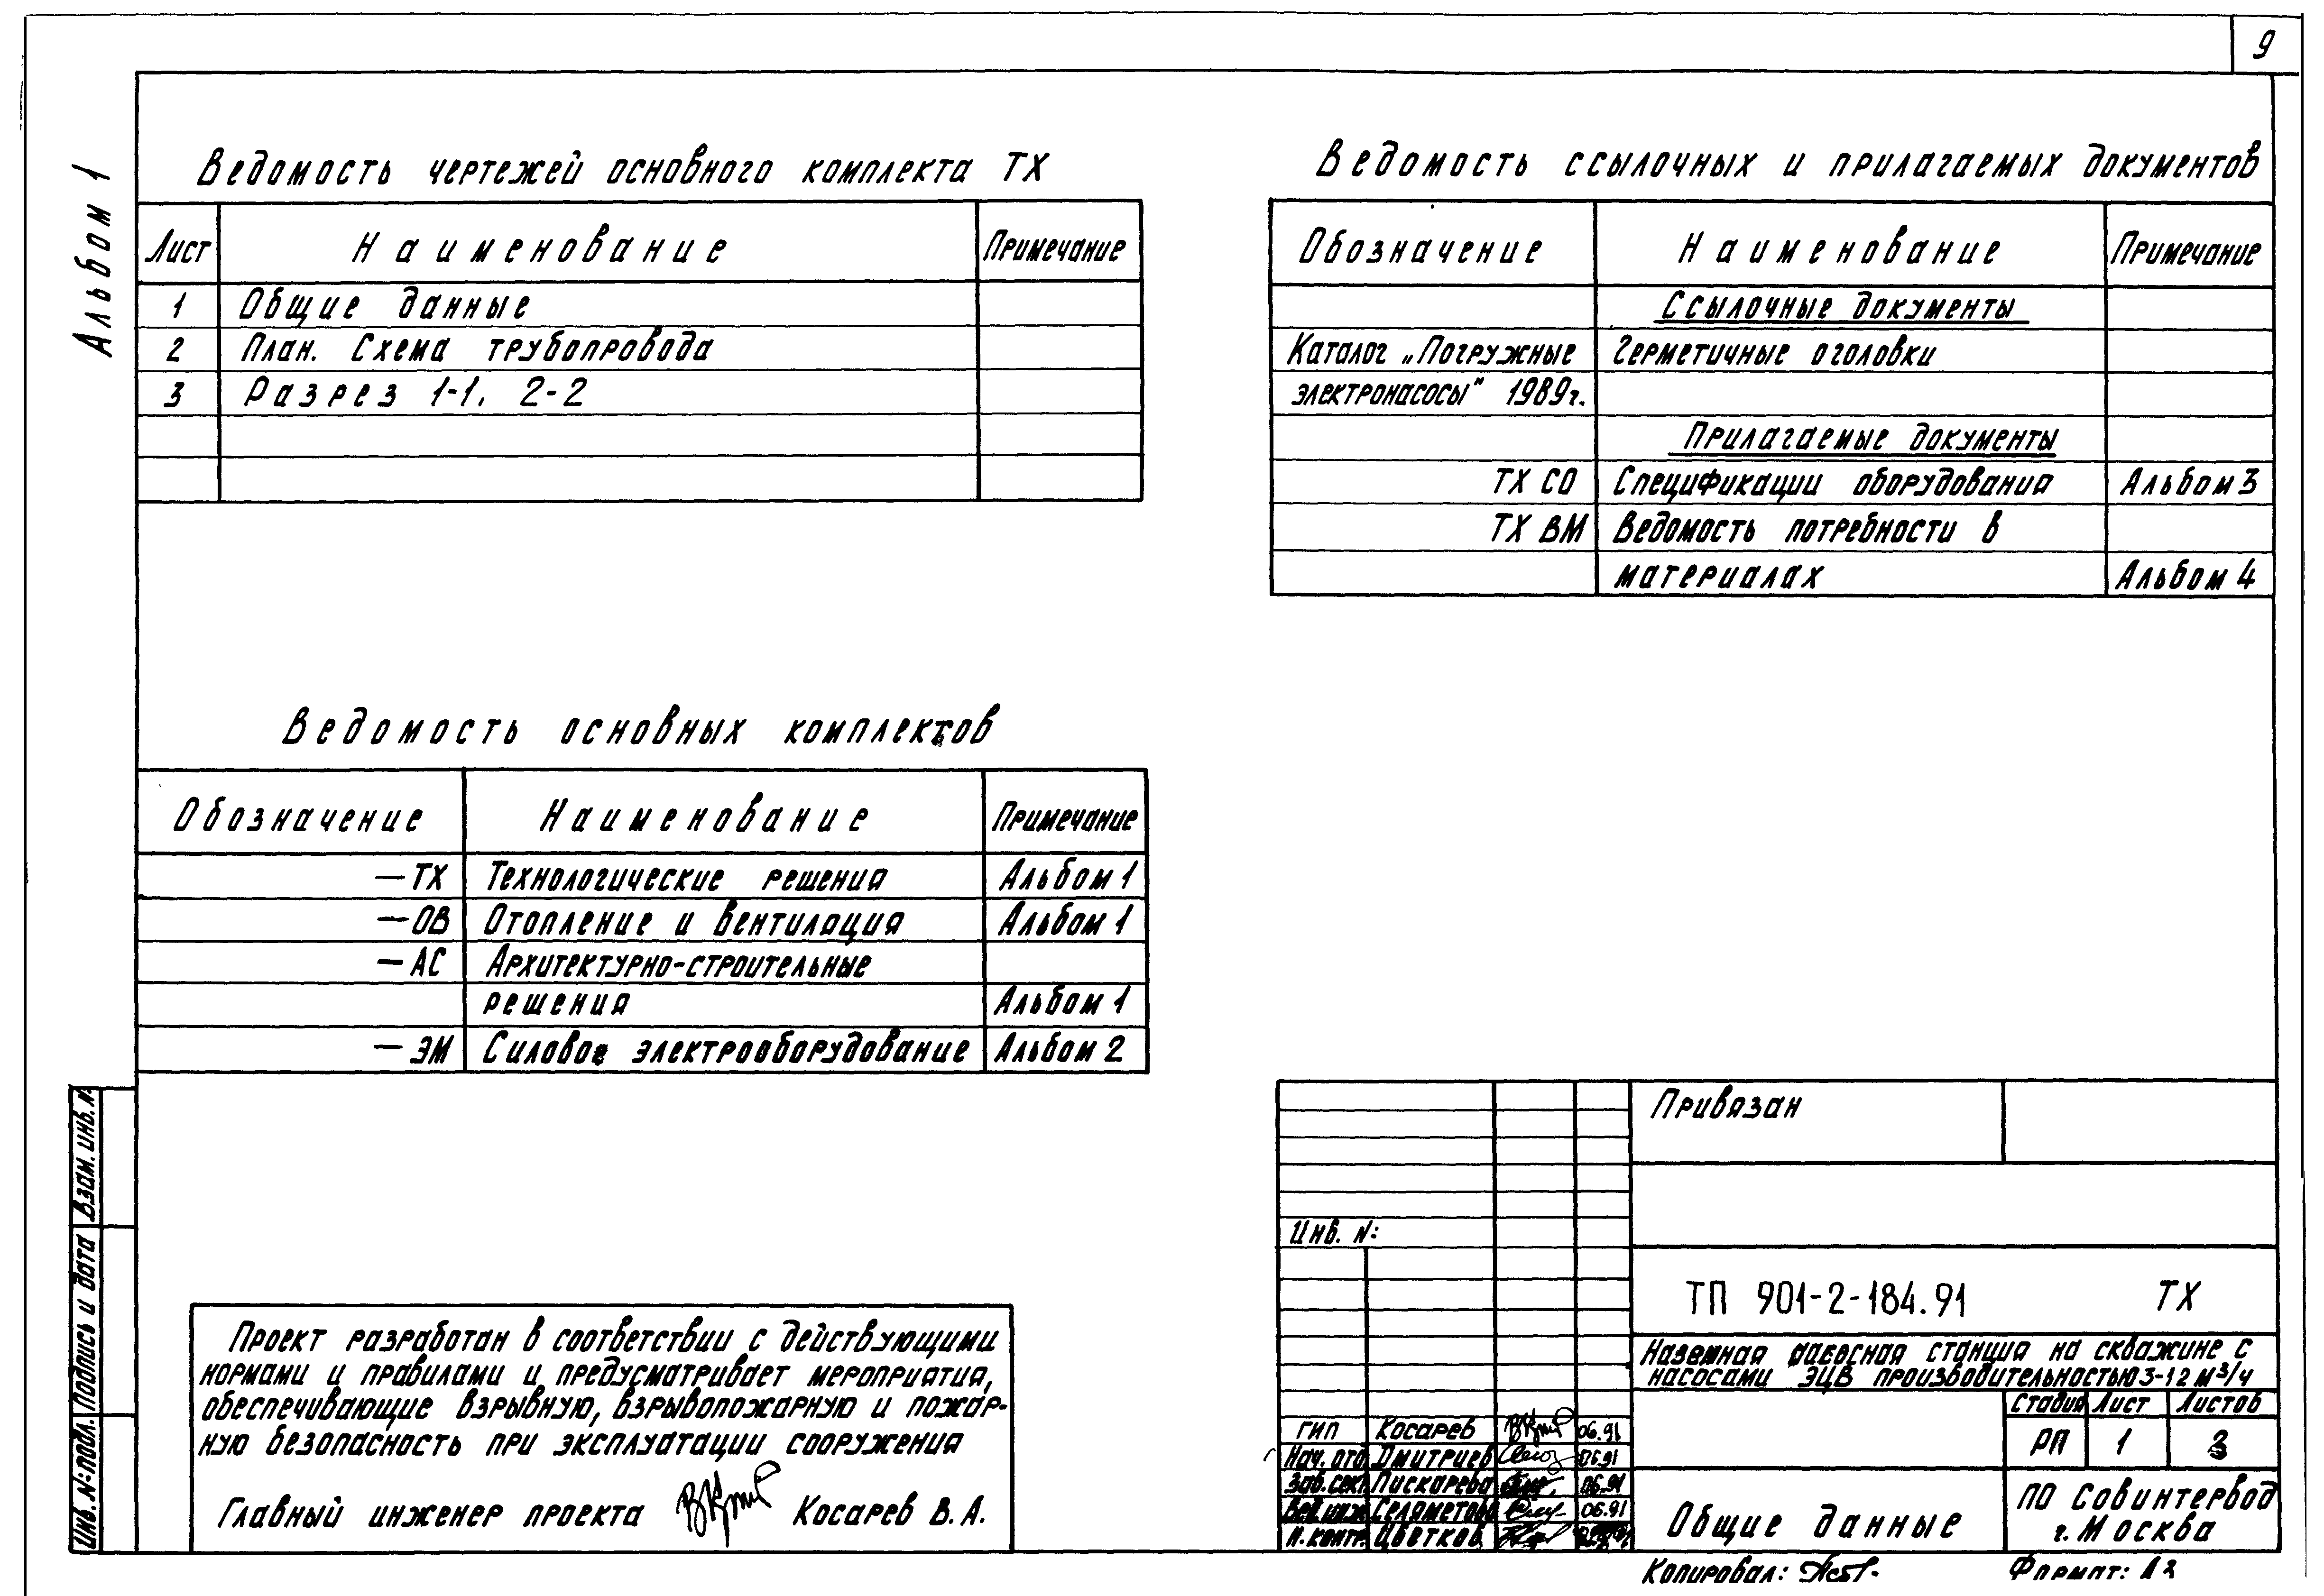 9
Альбом 1
Ведомость чертежей основного комплекта ТХ
Лист Наименование Примечание
1 Общие данные
2 План. Схема трубопровода
3 Разрез 1-1. 2-2
Ведомость ссылочных и прилагаемых документов
Обозначение Наименование Примечание
Ссылочные документы
Каталог „Погружные Герметичные оголовки
электронасосы" 1989г.
Прилагаемые документы
ТХ СО Спецификации оборудования Альбом 3
ТХ ВМ Ведомость потребности в
материалах Альбом 4
Ведомость основных комплектов
Обозначение Наименование Примечание
—ТХ Технологические решения Альбом 1
—ОВ Отопление и вентиляция Альбом 1
—АС Архитектурно-строительные
решения Альбом 1
—ЭМ Силовое электрооборудование Альбом 2
Взам. инв. №
Подпись и дата
Инв. №: подл.
Проект разработан в соответствии с действующими
нормами и правилами и предусматривает мероприятия,
обеспечивающие взрывную, взрывопожарную и пожар-
ную безопасность при эксплуатации сооружения
Главный инженер проекта Косарев В.А.
Привязан
Инв. №:
ТП 901-2-184.91 ТХ
Наземная насосная станция на скважине с
насосами ЭЦВ производительностью 3-12 м³/ч
Стадия Лист Листов
РП 1 3
ГИП Косарев 06.91
Нач. отд. Дмитриев 06.91
Зав. сект. Пискарева 06.91
Вед. инж. Селяметова 06.91
Н. контр. Цветков
Общие данные
ПО Совинтервод
г. Москва
Копировал:
Формат: А3